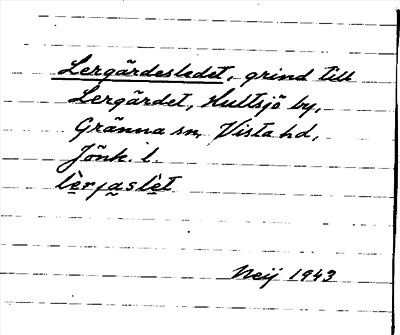 Lergärdesledet, grind till
Lergärdet, Hultsjö by,
Gränna sn, Vista hd,
Jönk. l.
lèrjaslèt
Neij 1943